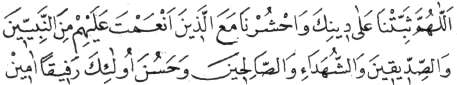 اَللّٰهُمَّ ثَبِّتْنَا عَلٰى دِينِكَ وَاحْشُرْنَا مَعَ الَّذِينَ اَنْعَمْتَ عَلَيْهِمْ مِنَ النَّبِيّينَ
وَالصِّدِّيقِينَ وَالشُّهَدَاءِ وَالصَّالِحِينَ وَحَسُنَ اُولٰئِكَ رَفِيقًا اٰمِينْ